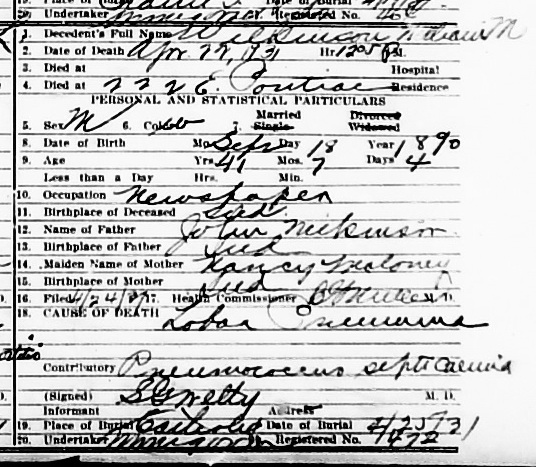 20. Undertaker Registered No.
1. Decedent's Full Name Wilkinson William M
2. Date of Death Apr. 22, 1931 Hr. 12:05 P.M.
3. Died at Hospital
4. Died at 222 E. Pontiac Residence
PERSONAL AND STATISTICAL PARTICULARS
5. Sex M 6. Color 7. Married Single Divorced Widowed
8. Date of Birth Mo. Sept Day 18 Year 1890
9. Age Yrs. 41 Mos. 7 Days 4
Less than a Day Hrs. Min.
10. Occupation Newspaper
11. Birthplace of Deceased Ind.
12. Name of Father John Wilkinson
13. Birthplace of Father Ind
14. Maiden Name of Mother Nancy Maloney
15. Birthplace of Mother Ind
16. Filed 4/24/31 17. Health Commissioner M.D.
18. CAUSE OF DEATH Lobar Pneumonia
Contributory Pneumococcus septicaemia
(Signed) S G Welty M. D.
Informant Address
19. Place of Burial Date of Burial 4/25/31
20. Undertaker Registered No. 472